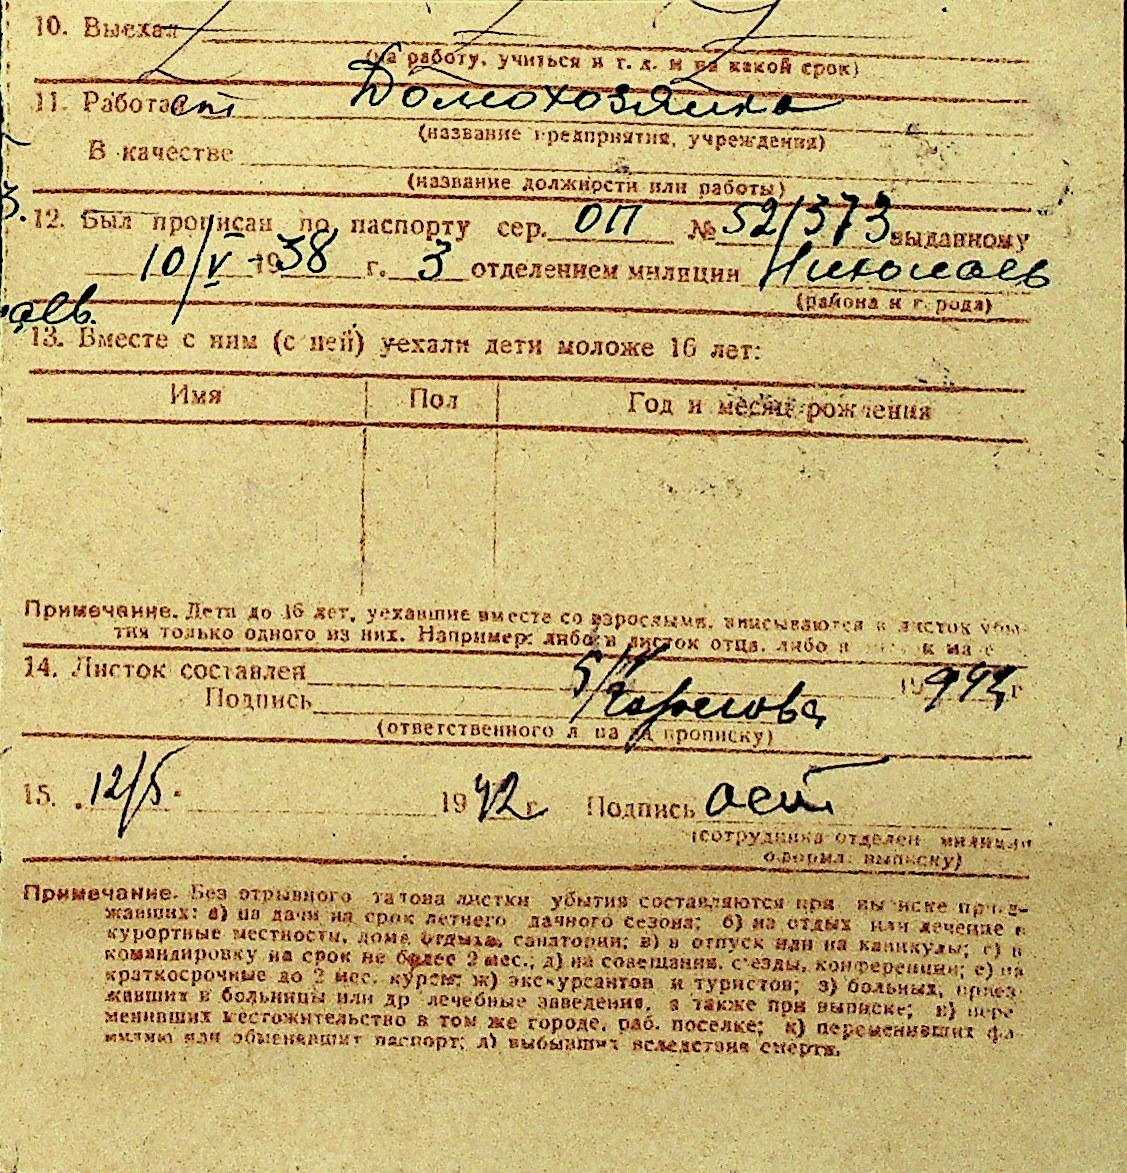 10. Выехал
(на работу, учиться и т. д. и на какой срок)
11. Работает Домохозяйка
(название предприятия, учреждения)
В качестве
(название должности или работы)
з.
12. Был прописан по паспорту сер. ОП № 521373 выданному
10/V 1938 г. 3 отделением милиции Николаев
(района и города)
аев.
13. Вместе с ним (с ней) уехали дети моложе 16 лет:
Имя Пол Год и месяц рождения
Примечание. Дети до 16 лет, уехавшие вместе со взрослыми, вписываются в листок убы-
тия только одного из них. Например: либо в листок отца, либо в
14. Листок составлен 5/V г
Подпись
(ответственного л на за прописку)
15. 12/5 1942 г. Подпись
(сотрудника отделен милиции
оформл. выписку)
Примечание. Без отрывного талона листки убытия составляются при выписке приез-
жавших: а) на дачи на срок летнего дачного сезона; б) на отдых или лечение в
курортные местности, дома отдыха, санатории; в) в отпуск или на каникулы; г) в
командировку на срок не более 2 мес.; д) на совещания, съезды, конференции; е) на
краткосрочные до 2 мес. курсы; ж) экскурсантов и туристов; з) больных, приез-
жавших в больницы или др лечебные заведения, а также при выписке; и) пере
менивших местожительство в том же городе, раб. поселке; к) переменивших фа-
милию или обменявших паспорт; л) выбывших вследствия смерти.